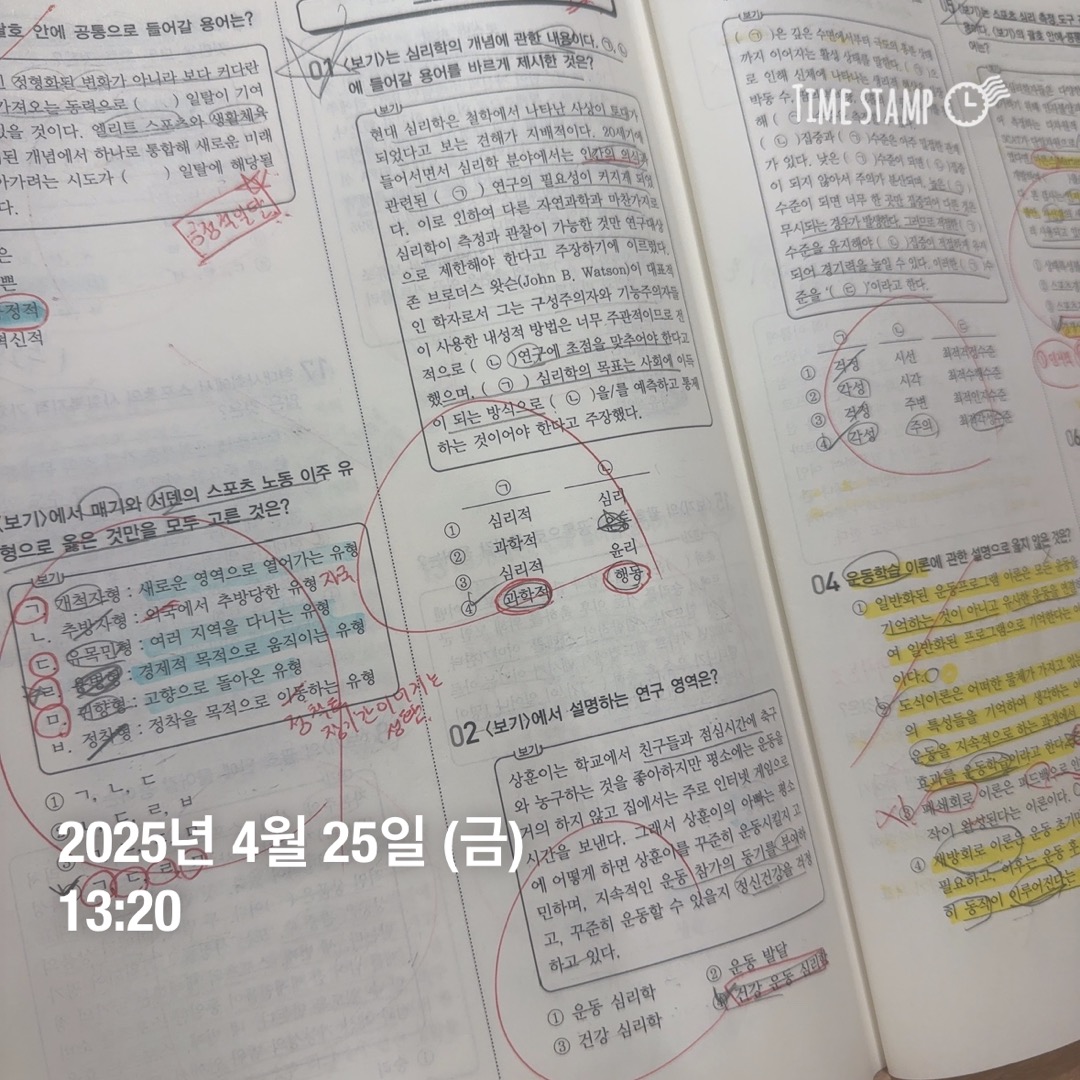 괄호 안에 공통으로 들어갈 용어는?
정형화된 변화가 아니라 보다 커다란
가져오는 동력으로 ( ) 일탈이 기여
있을 것이다. 엘리트 스포츠와 생활체육
된 개념에서 하나로 통합해 새로운 미래
아가려는 시도가 ( ) 일탈에 해당될
다.
긍정적 일탈
은
쁜
정적
혁신적
〈보기〉에서 매기와 서덴의 스포츠 노동 이주 유
형으로 옳은 것만을 모두 고른 것은?
보기
ㄱ. 개척자형 : 새로운 영역으로 열어가는 유형
ㄴ. 추방자형 : 외국에서 추방당한 유형
ㄷ. 유목민형 : 여러 지역을 다니는 유형
ㄹ. : 경제적 목적으로 움직이는 유형
ㅁ. 귀향형 : 고향으로 돌아온 유형
ㅂ. 정착형 : 정착을 목적으로 이동하는 유형
① ㄱ, ㄴ, ㄷ
ㄷ, ㄹ, ㅂ
01 〈보기〉는 심리학의 개념에 관한 내용이다. ㉠, ㉡
에 들어갈 용어를 바르게 제시한 것은?
보기
현대 심리학은 철학에서 나타난 사상이 토대가
되었다고 보는 견해가 지배적이다. 20세기에
들어서면서 심리학 분야에서는 인간의 의식과
관련된 ( ㉠ ) 연구의 필요성이 커지게 되었
다. 이로 인하여 다른 자연과학과 마찬가지로
심리학이 측정과 관찰이 가능한 것만 연구대상
으로 제한해야 한다고 주장하기에 이르렀다.
존 브로더스 왓슨(John B. Watson)이 대표적
인 학자로서 그는 구성주의자와 기능주의자들
이 사용한 내성적 방법은 너무 주관적이므로 전
적으로 ( ㉡ ) 연구에 초점을 맞추어야 한다고
했으며, ( ㉠ ) 심리학의 목표는 사회에 이득
이 되는 방식으로 ( ㉡ )을/를 예측하고 통제
하는 것이어야 한다고 주장했다.
㉠ ㉡
① 심리적 심리
② 과학적 운동
③ 심리적 윤리
④ 과학적 행동
02 〈보기〉에서 설명하는 연구 영역은?
보기
상훈이는 학교에서 친구들과 점심시간에 축구
와 농구하는 것을 좋아하지만 평소에는 운동을
거의 하지 않고 집에서는 주로 인터넷 게임으로
시간을 보낸다. 그래서 상훈이의 아빠는 평소
에 어떻게 하면 상훈이를 꾸준히 운동시킬지 고
민하며, 지속적인 운동 참가의 동기를 부여하
고, 꾸준히 운동할 수 있을지 정신건강을 걱정
하고 있다.
① 운동 심리학
② 운동 발달
③ 건강 심리학
④ 건강 운동 심리학
보기
( ㉠ )은 깊은 수면에서부터 극도의 흥분 상태
까지 이어지는 활성 상태를 말한다. ( ㉠ )으
로 인해 신체에 나타나는 생리적
박동 수,
해 (
( ㉡ )집중과 ( ㉠ )수준은 아주 밀접한 관계
가 있다. 낮은 ( ㉠ )수준이 되면 ( ㉡ )집중
이 되지 않아서 주의가 분산되며, 높은 ( ㉠ )
수준이 되면 너무 한 것만 집중되어 다른 것은
무시되는 경우가 발생한다. 그러므로 적당한 ( ㉠ )
수준을 유지해야 ( ㉡ )집중이 적절하게 유지
되어 경기력을 높일 수 있다. 이러한 ( ㉠ )수
준을 '( ㉢ )'이라고 한다.
㉠ ㉡ ㉢
① 걱정 시선 최적걱정수준
② 각성 시각 최적수행수준
③ 걱정 주변 최적인지수준
④ 각성 주의 최적각성수준
04 운동학습 이론에 관한 설명으로 옳지 않은 것은?
① 일반화된 운동프로그램 이론은 모든 운동을
기억하는 것이 아니고 유사한 운동을 통합하
여 일반화된 프로그램으로 기억한다는
이다.
② 도식이론은 어떠한 물체가 가지고 있는
의 특성들을 기억하여 생각하는
운동을 지속적으로 하는 과정에서
효과를 운동학습이라고 한다.
③ 폐쇄회로 이론은 피드백으로 인
작이 완성된다는 이론이다.
④ 개방회로 이론은 운동 초기
필요하고, 이후는 운동 후
히 동작이 이루어진다는
06
TIMESTAMP
2025년 4월 25일 (금)
13:20